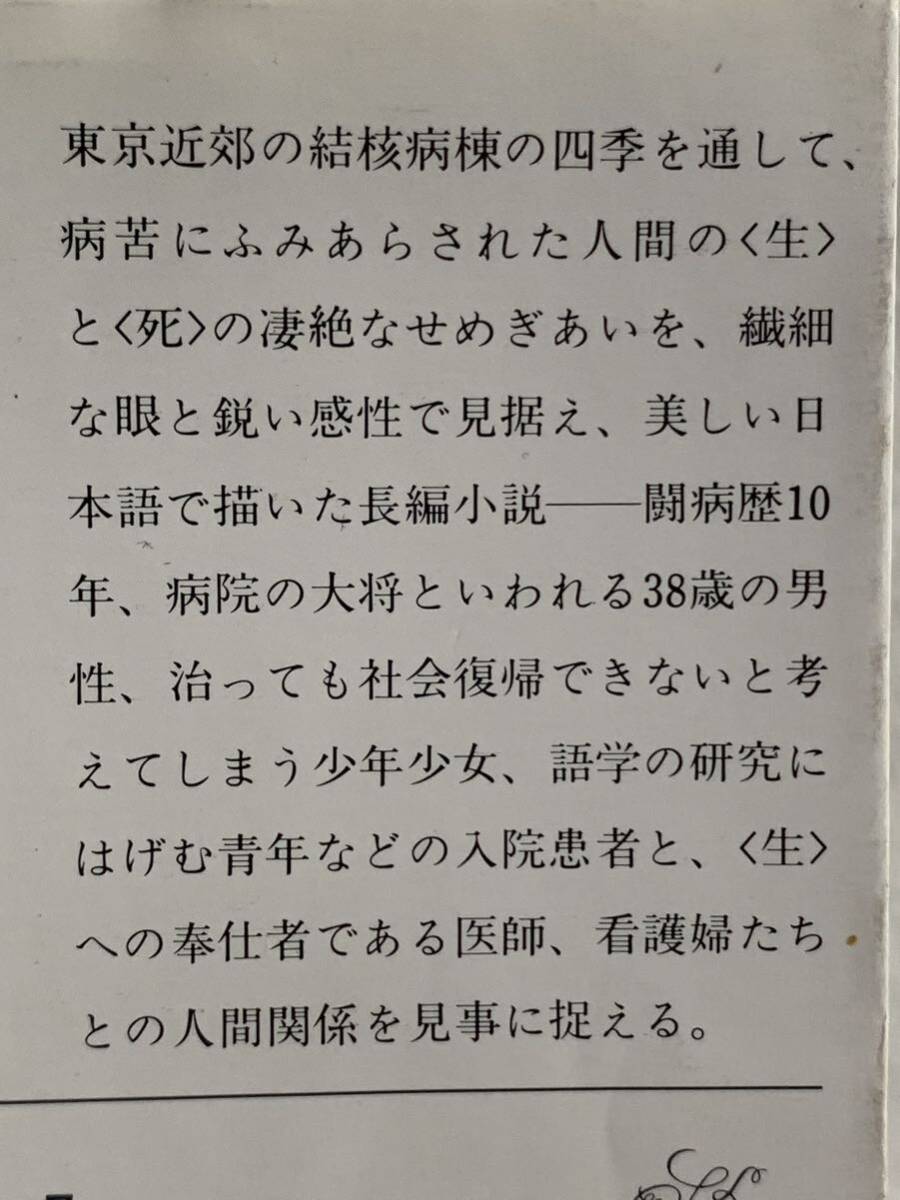 東京近郊の結核病棟の四季を通して、
病苦にふみあらされた人間の〈生〉
と〈死〉の凄絶なせめぎあいを、繊細
な眼と鋭い感性で見据え、美しい日
本語で描いた長編小説――闘病歴10
年、病院の大将といわれる38歳の男
性、治っても社会復帰できないと考
えてしまう少年少女、語学の研究に
はげむ青年などの入院患者と、〈生〉
への奉仕者である医師、看護婦たち
との人間関係を見事に捉える。